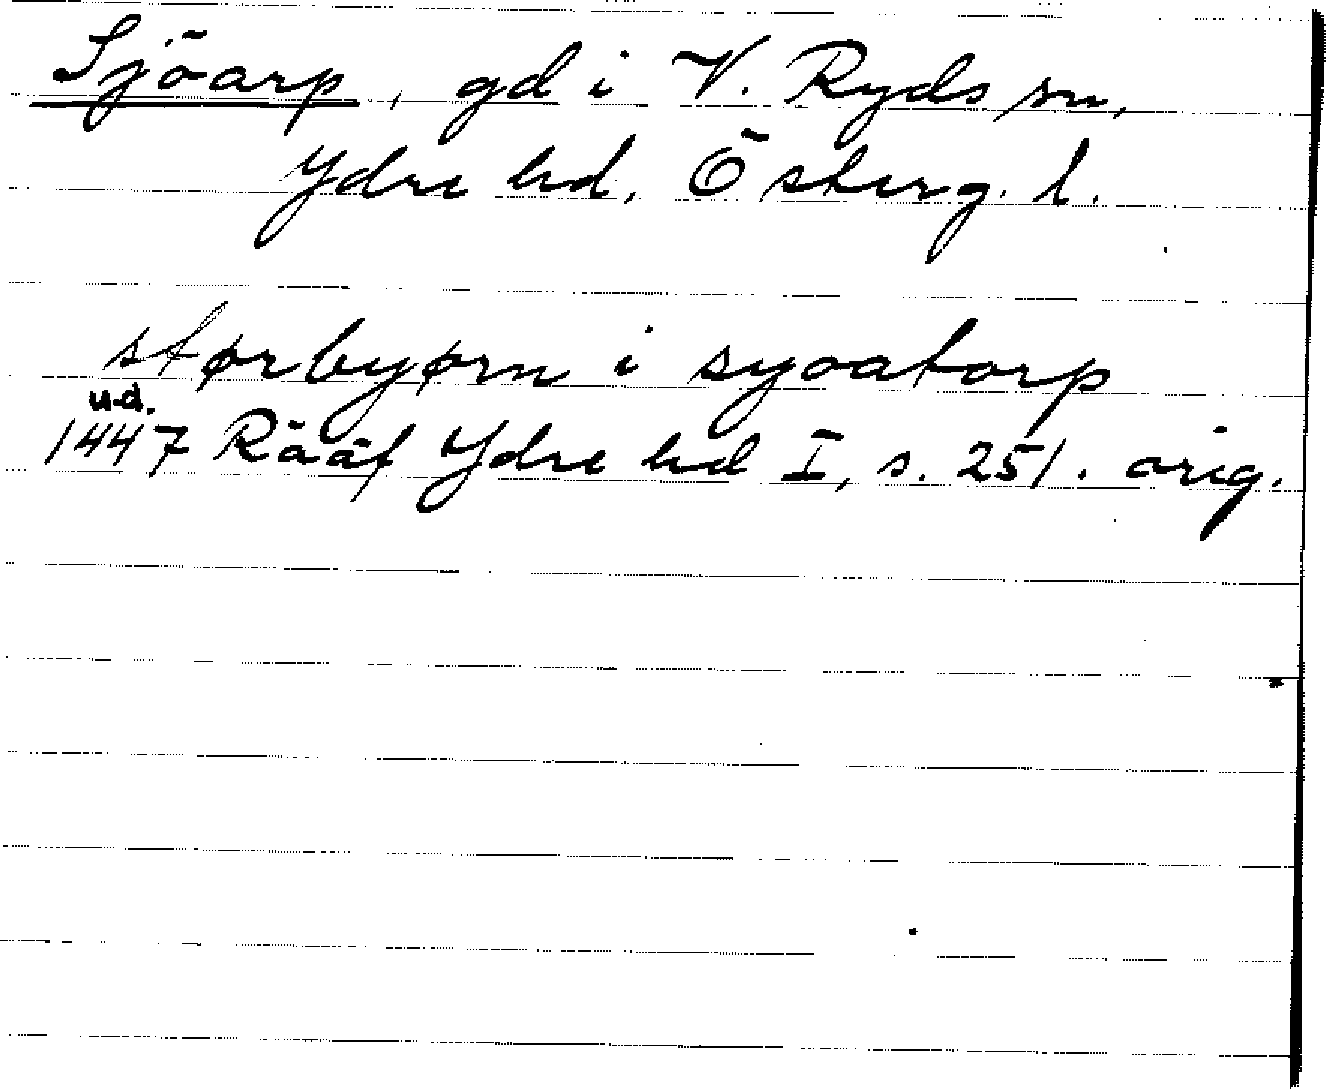 Sjöarp, gd i V. Ryds sn,
Ydre hd, Österg. l.
størbyørn i syoatorp
u.d.
1447 Rääf Ydre hd I, s. 251. orig.